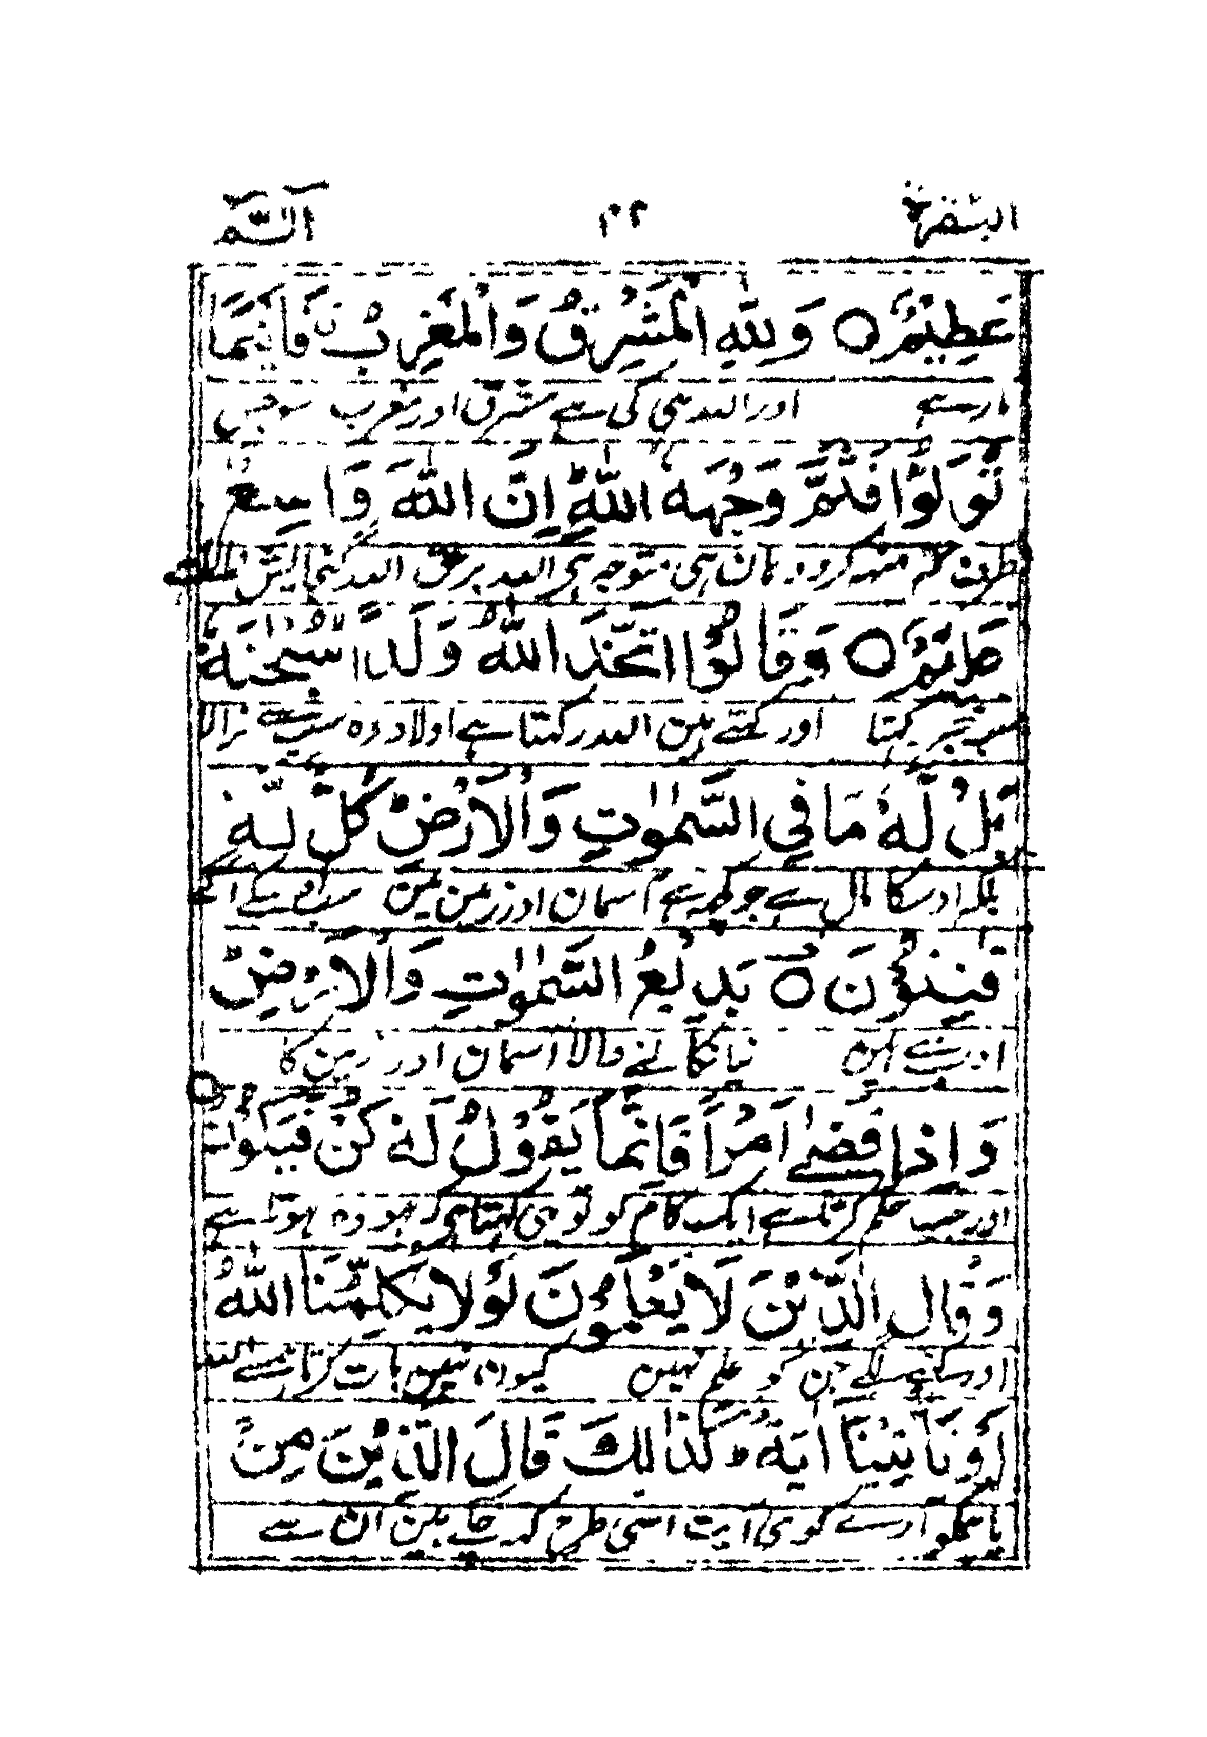 البقرة ۲۲ الٓمّٓ
عَظِيْمٌ ○ وَلِلّٰهِ الْمَشْرِقُ وَالْمَغْرِبُ فَاَيْنَمَا
مار ہے اور اللہ ہی کی ہے مشرق اور مغرب سو جس
تُوَلُّوْا فَثَمَّ وَجْهُ اللّٰهِ اِنَّ اللّٰهَ وَاسِعٌ
طرف تم منہ کرو وہاں ہی متوجہ ہے اللہ برحق اللہ گنجایش والا ہے
عَلِيْمٌ ○ وَقَالُوا اتَّخَذَ اللّٰهُ وَلَدًا سُبْحٰنَهٗ
سب خبر رکھتا اور کہتے ہین اللہ رکھتا ہے اولاد وہ سب سے نرالا
بَلْ لَّهٗ مَا فِي السَّمٰوٰتِ وَالْاَرْضِ كُلٌّ لَّهٗ
بلکہ اوسکا مال ہے جو کچھ ہے آسمان اور زمین مین سب اوسکے آگے
قٰنِتُوْنَ ○ بَدِيْعُ السَّمٰوٰتِ وَالْاَرْضِ
ادب سے ہین نیا نکالنے والا آسمان اور زمین کا
وَاِذَا قَضٰى اَمْرًا فَاِنَّمَا يَقُوْلُ لَهٗ كُنْ فَيَكُوْنُ ○
اور جب حکم کرتا ہے ایک کام کو تو یہی کہتا ہے کہ ہو وہ ہوتا ہے
وَقَالَ الَّذِيْنَ لَا يَعْلَمُوْنَ لَوْلَا يُكَلِّمُنَا اللّٰهُ
اور کہنے لگے جن کو علم نہین کیون نہین بات کرتا ہمسے اللہ
اَوْ تَاْتِيْنَا اٰيَةٌ كَذٰلِكَ قَالَ الَّذِيْنَ مِنْ
یا ہمکو آوے کوئی آیت اسی طرح کہہ چکے ہین ان سے